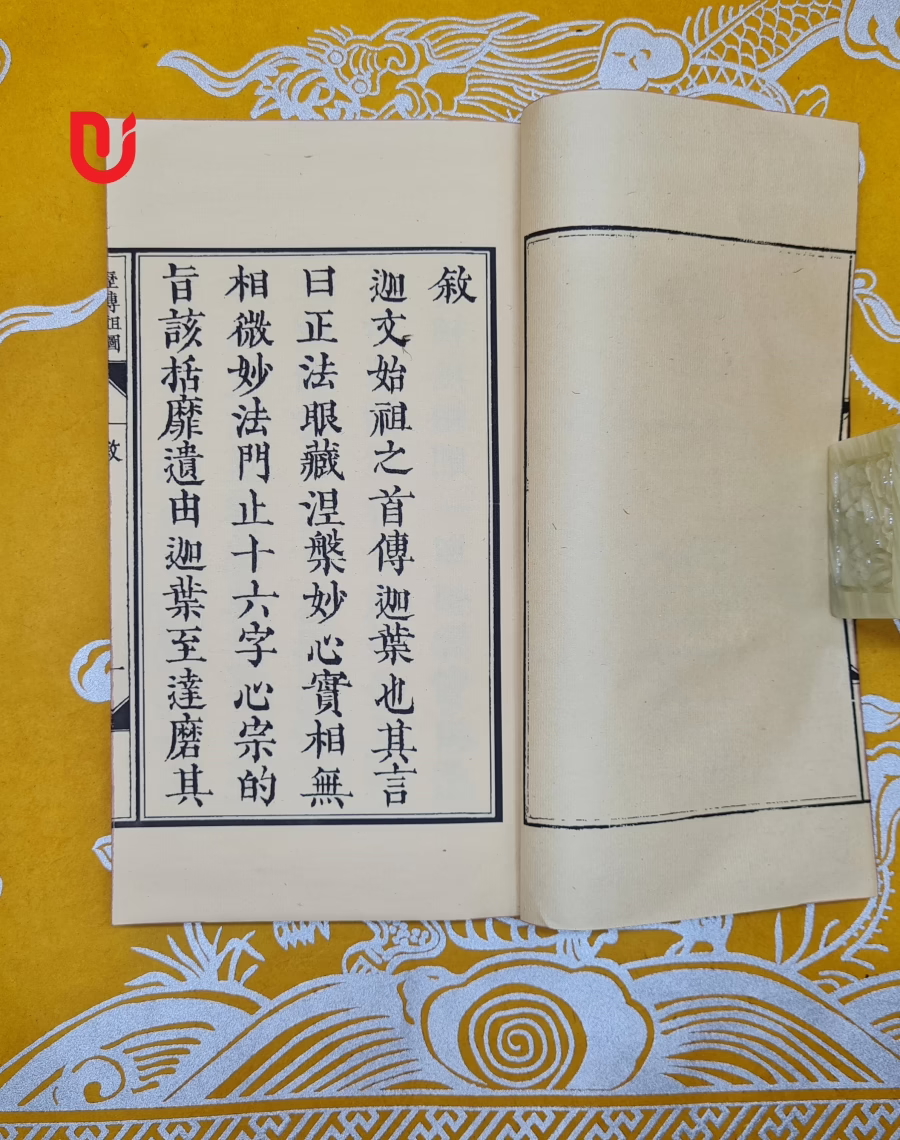 敘
迦文始祖之首傳迦葉也其言
曰正法眼藏涅槃妙心實相無
相微妙法門止十六字心宗的
旨該括靡遺由迦葉至達磨其
歷傳祖圖
敘
一